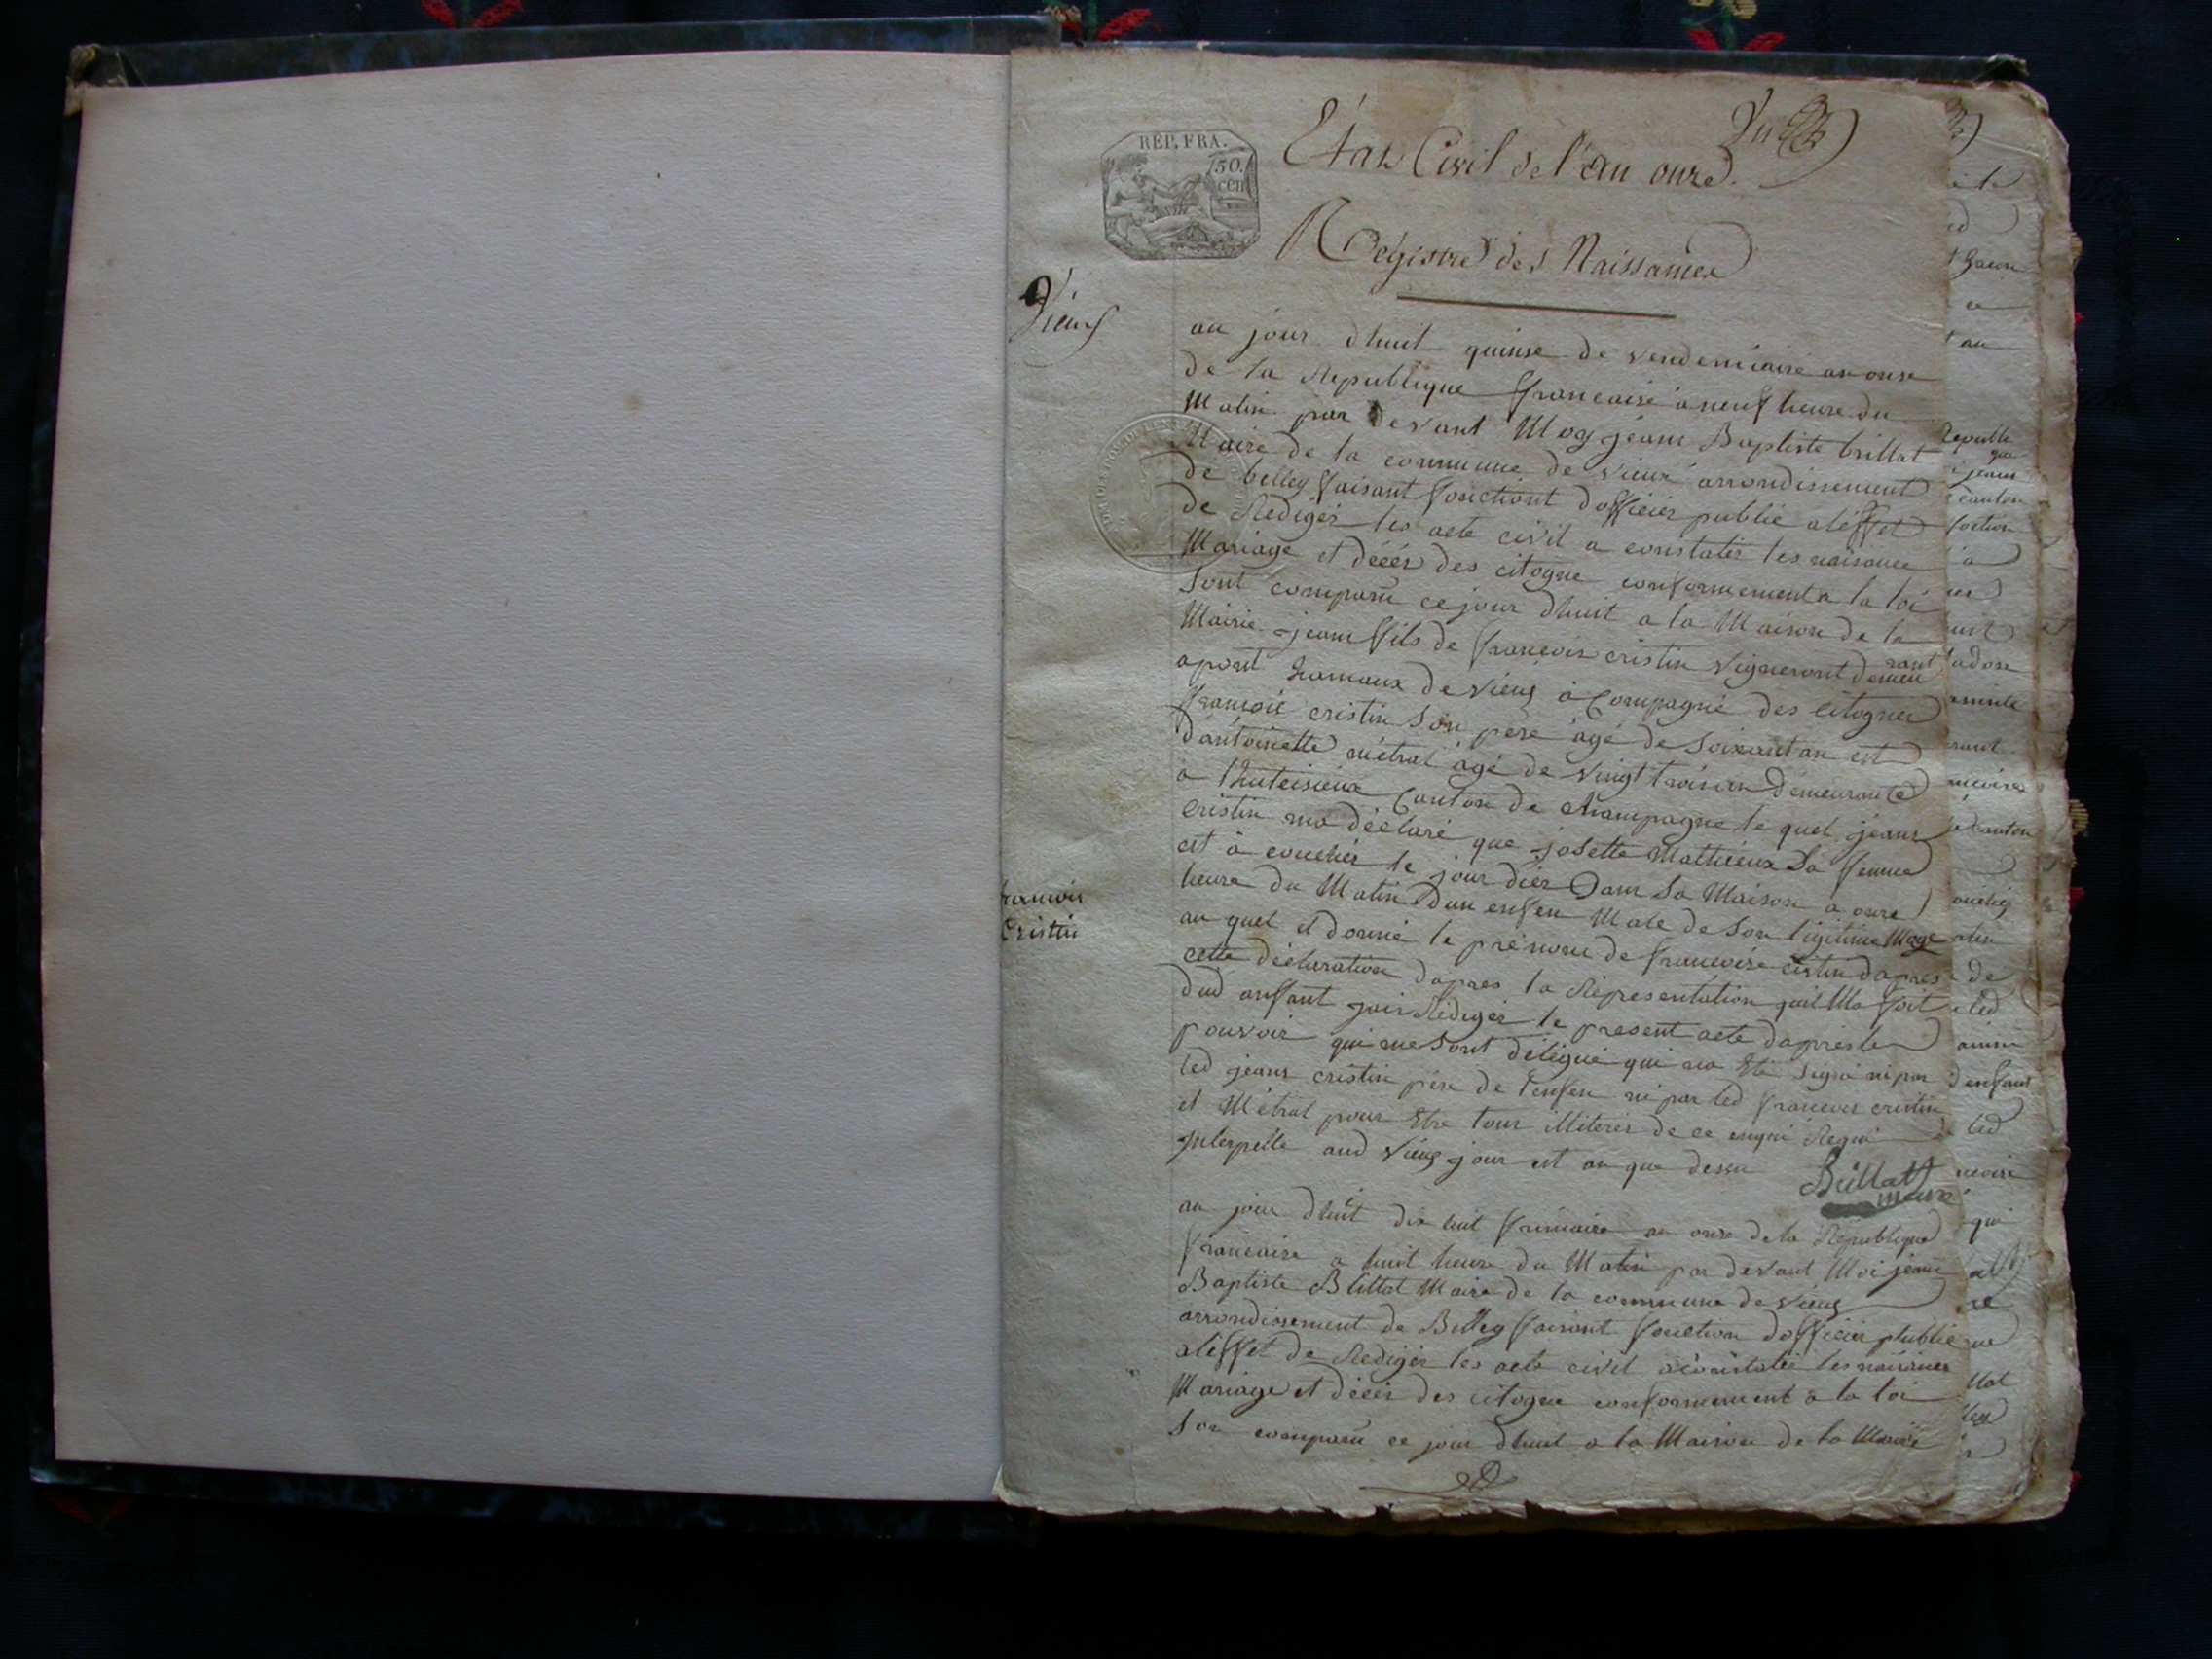 REP. FRA.
50.
cen
État Civil de l'an onze.
Registre des Naissances
Vieuf
au jour dhuit quinse de vendemiaire an onse
de la Republique francaise a neuf heure du
Matin par devant Moy jean Baptiste brillat
Maire de la commune de vieux arrondissement
de belley faisant fonctiont dofficier public aléffet
de Rediger les acte civil a constater les naisance
Mariage et décés des citoyne conformement a la loi
Sont comparu ce jour dhuit a la Maison de la
Mairie jean fils de francois cristin vigneront demeu
rant
apont hamaux de vieuf a Compagné des citoyner
francois cristin Son pere agé de Soixant an est
dantoinette métral agé de vingt trois an demeurante
a Canton de champagne le quel jean
cristin ma déclaré que josette Mathieux Sa femme
est à couchér le jour diér Dans Sa Maison a onze
heure du Matin dun enfen Male de Son légitime
au quel il donné le prénom de cristin dapres
cette déclaration dapres la Representation quil Ma fait
dud anfant jais Rediger le present acte dapres le
pouvoir qui me Sont délégué qui na Eté signé ni par
led jean cristin pére de lenfen ni par led francois cristin
et Métral pour Etre tous illiterés de ce
Interpellé aud vieuf jour est an que dessu
Brillat
maire
francois
Cristin
au jour dhuit dix huit frimaire an onze de la Republique
francaise a huit heure du Matin par devant Moi jean
Baptiste Brillat Maire de la commune de vieuf
arrondissement de Belley faisant fonction dofficier plublic
aléffet de Rediger les acte civil a constater les naisances
Mariage et décés des citoyne conformement à la loi
Son comparu ce jour dhuit a la Maison de la Mairie